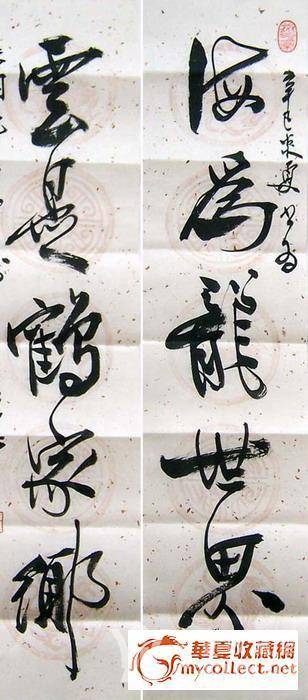 海為龍世界
辛巳末夏
雲是鶴家鄉
華夏收藏網
mycollect.net